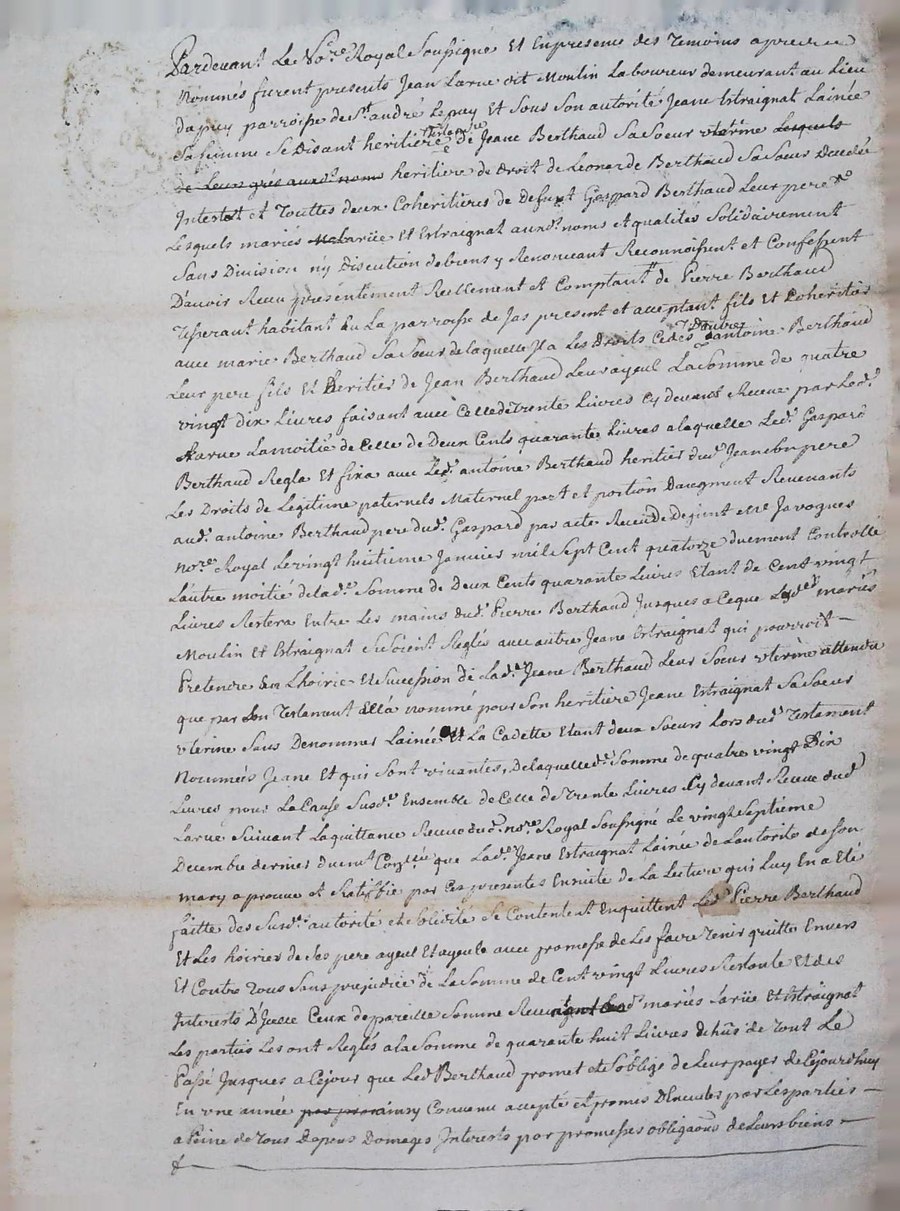 Pardevant Le No.re Royal Soussigné Et Enpresence des Temoins apres
Nommés furent presents Jean Larue dit Moulin Laboureur demeurant au Lieu
dupuy parroisse de St. andré Lepuy Et Sous Son autorité Jeane Estraignat Lainée
Safemme Se Disant heritiere Testam.re de Jeane Berthaud Sa Soeur uterine Lesquels
de Leurs grés auxd. noms heritiere de Droit de Leonarde Berthaud Sa Soeur Decedée
Intestat et Touttes deux Coheritieres de Defunt Gaspard Berthaud Leur pere
Lesquels mariés Larüe Et Estraignat auxd. noms et qualités Solidairement
Sans Division n'y Discution debiens y Renonceant Reconnoissent et Confessent
D'avoir Receu presentement Reellement et Comptant de Pierre Berthaud
Tisserant habitant du La parroisse de Jas present et acceptant fils Et Coheritier
avec marie Berthaud Sa Soeur de laquelle Jl a Les Droits Cedés D'autre antoine Berthaud
Leur pere fils Et Heritier de Jean Berthaud Leur ayeul La Somme de quatre
vingt dix Livres faisant avec Celle de Trente Livres Cy devant Receue par Led.
Larue La moitié de Celle de Deux Cents quarante Livres a laquelle Led. Gaspard
Berthaud Regla Et fixa avec Led. antoine Berthaud heritier dud. Jean Son pere
Les Droits de Legitime paternels Maternel part et portion Daugment Revenants
aud. antoine Berthaud pere dud. Gaspard par acte Receu De Defunt Me. Javogues
no.re Royal Le vingt huitieme Janvier mil Sept Cent quatorze duement Controllé
Lautre moitié delad. Somme de Deux Cents quarante Livres Etant de Cent vingt
Livres Restera Entre Les mains dud. Pierre Berthaud Jusques a Ceque Lesd. mariés
Moulin Et Estraignat Se Soient Reglés avec autre Jeane Estraignat qui pourroit
Pretendre En Lhoirie Et Succession de Lad. Jeane Berthaud Leur Soeur uterine attendu
que par Son Testament Elle a nommé pour Son heritiere Jeane Estraignat Sa Soeur
uterine Sans Denommer Lainée Et La Cadette Etant deux Soeurs Lors dud. Testament
Nommés Jeane Et qui Sont vivantes, De laquelle d. Somme de quatre vingt Dix
Livres pour La Cause Susd. Ensemble de Celle de Trente Livres Cy devant Receue dud.
Larue Suivant La quittance Receu dud. no.re Royal Soussigné Le vingt Septieme
Decembre dernier duem.t Con.lée que Lad. Jeane Estraignat Lainée de Lautorité de Son
mary aprouve et Ratiffie par Ces presentes Ensuite de La Lecture qui Luy En a Eté
faitte des Susd. autorité Se Contentent Enquittent Led. Pierre Berthaud
Et Les hoiries de Ses pere ayeul Et ayeule avec promesse de Les faire Tenir quitte Envers
Et Contre Tous Sans prejudice de La Somme de Cent vingt Livres Restante Et des
Interests D'Jcelle Ceux de pareille Somme mariés Larüe Et Estraignat
Les parties Les ont Reglés a la Somme de quarante huit Livres de Tout Le
Passé Jusques a Cejour que Led. Berthaud promet et S'oblige de Leur payer de Cejourdhuy
En une année ainsy Convenu accepté et promis D'Executer par Les parties
a Peine de Tous Depens Domages Interests par promesses obligaons de Leurs biens
&